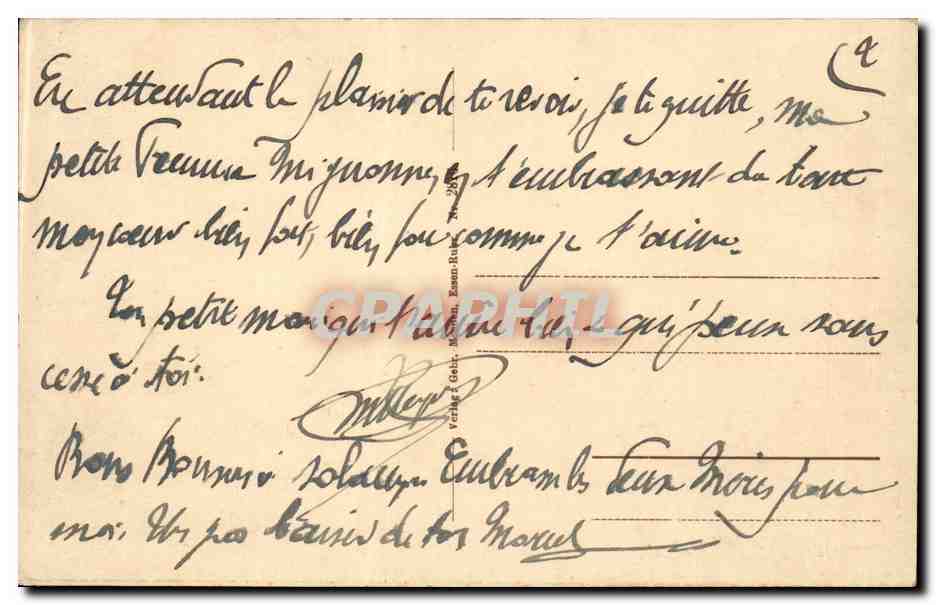 2
En attendant le plaisir de te revoir, je te quitte, ma
petite Femme Mignonne, en t'embrassant de tout
mon cœur bien fort, bien fort comme je t'aime.
Ton petit mari qui t'aime bien & qui pense sans
cesse à toi.
Bons Baisers à Solange Embrasse les deux Mémés pour
moi. Un gros baiser de ton Marcel
Verlag: Gebr. Essen-Ruhr. Nr.
CPARHTL